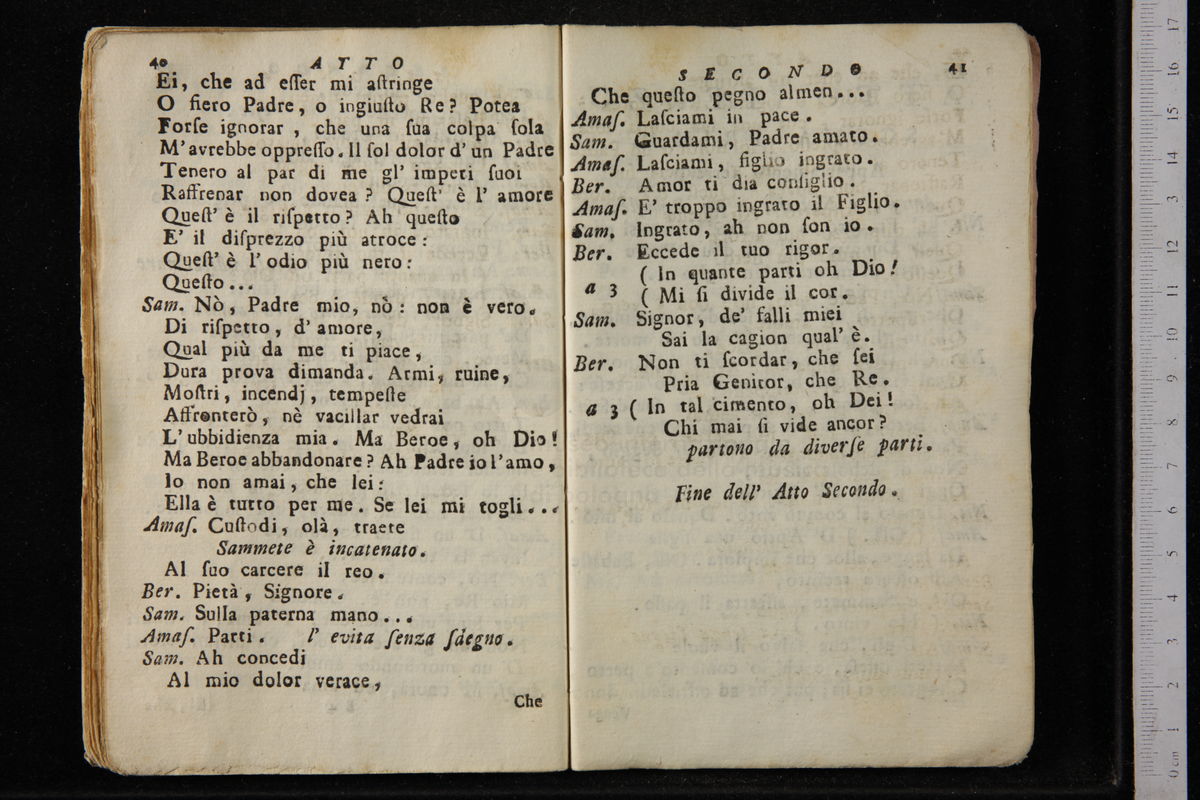 40 ATTO
Ei, che ad eſſer mi aſtringe
O fiero Padre, o ingiuſto Re? Potea
Forſe ignorar, che una ſua colpa ſola
M'avrebbe oppreſſo. Il ſol dolor d'un Padre
Tenero al par di me gl'impeti ſuoi
Raffrenar non dovea? Queſt' è l'amore
Queſt' è il riſpetto? Ah queſto
E' il diſprezzo più atroce:
Queſt' è l'odio più nero:
Queſto...
Sam. Nò, Padre mio, nò: non è vero.
Di riſpetto, d'amore,
Qual più da me ti piace,
Dura prova dimanda. Armi, ruine,
Moſtri, incendj, tempeſte
Affronterò, nè vacillar vedrai
L'ubbidienza mia. Ma Beroe, oh Dio!
Ma Beroe abbandonare? Ah Padre io l'amo,
Io non amai, che lei:
Ella è tutto per me. Se lei mi togli...
Amaſ. Cuſtodi, olà, traete
Sammete è incatenato.
Al ſuo carcere il reo.
Ber. Pietà, Signore.
Sam. Sulla paterna mano...
Amaſ. Parti. l'evita ſenza ſdegno.
Sam. Ah concedi
Al mio dolor verace,
Che
SECONDO 41
Che queſto pegno almen...
Amaſ. Laſciami in pace.
Sam. Guardami, Padre amato.
Amaſ. Laſciami, figlio ingrato.
Ber. Amor ti dia conſiglio.
Amaſ. E' troppo ingrato il Figlio.
Sam. Ingrato, ah non ſon io.
Ber. Eccede il tuo rigor.
( In quante parti oh Dio!
a 3 ( Mi ſi divide il cor.
Sam. Signor, de' falli miei
Sai la cagion qual' è.
Ber. Non ti ſcordar, che ſei
Pria Genitor, che Re.
a 3 ( In tal cimento, oh Dei!
Chi mai ſi vide ancor?
partono da diverſe parti.
Fine dell' Atto Secondo.